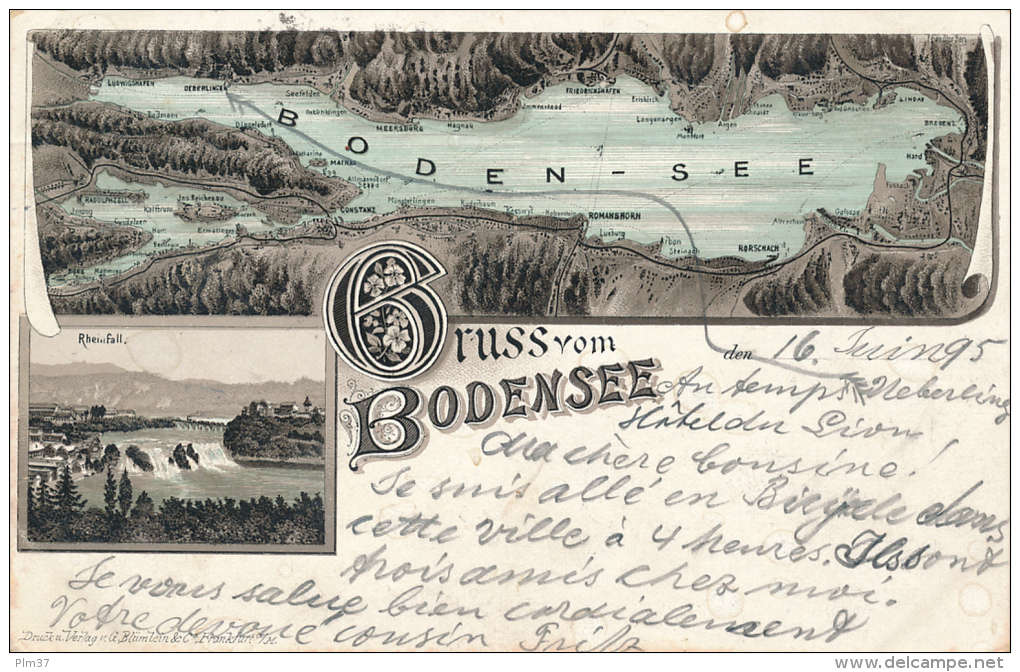 LUDWIGSHAFEN
UEBERLINGEN
Seefelden
Bodmann
Dingelsdorf
MEERSBURG
Hagnau
Immenstaad
FRIEDRICHSHAFEN
Eriskirch
Langenargen
Montfort
Argen
Wasserburg
LINDAU
BREGENZ
Hard
Fussach
BODEN-SEE
MAINAU
Egg
Allmannsdorf
Staad
CONSTANZ
RADOLPHZELL
Ins. Reichenau
Ermatingen
Münsterlingen
Kesswyl
ROMANSHORN
Luxburg
Arbon
Steinach
RORSCHACH
Altenrhein
Gaissau
Gruss vom
BODENSEE
Rheinfall.
den 16. Juin 95
An temps Ueberling
Hôtel du Lion
Ma chère Cousine!
Je suis allé en Bicycle dans
cette ville à 4 heures. Ils sont
trois amis chez moi.
Je vous salue bien cordialement
Votre devoué cousin Fritz
Druck u. Verlag v. G. Blümlein & Co. Frankfurt a/M.
Plm37
www.delcampe.net